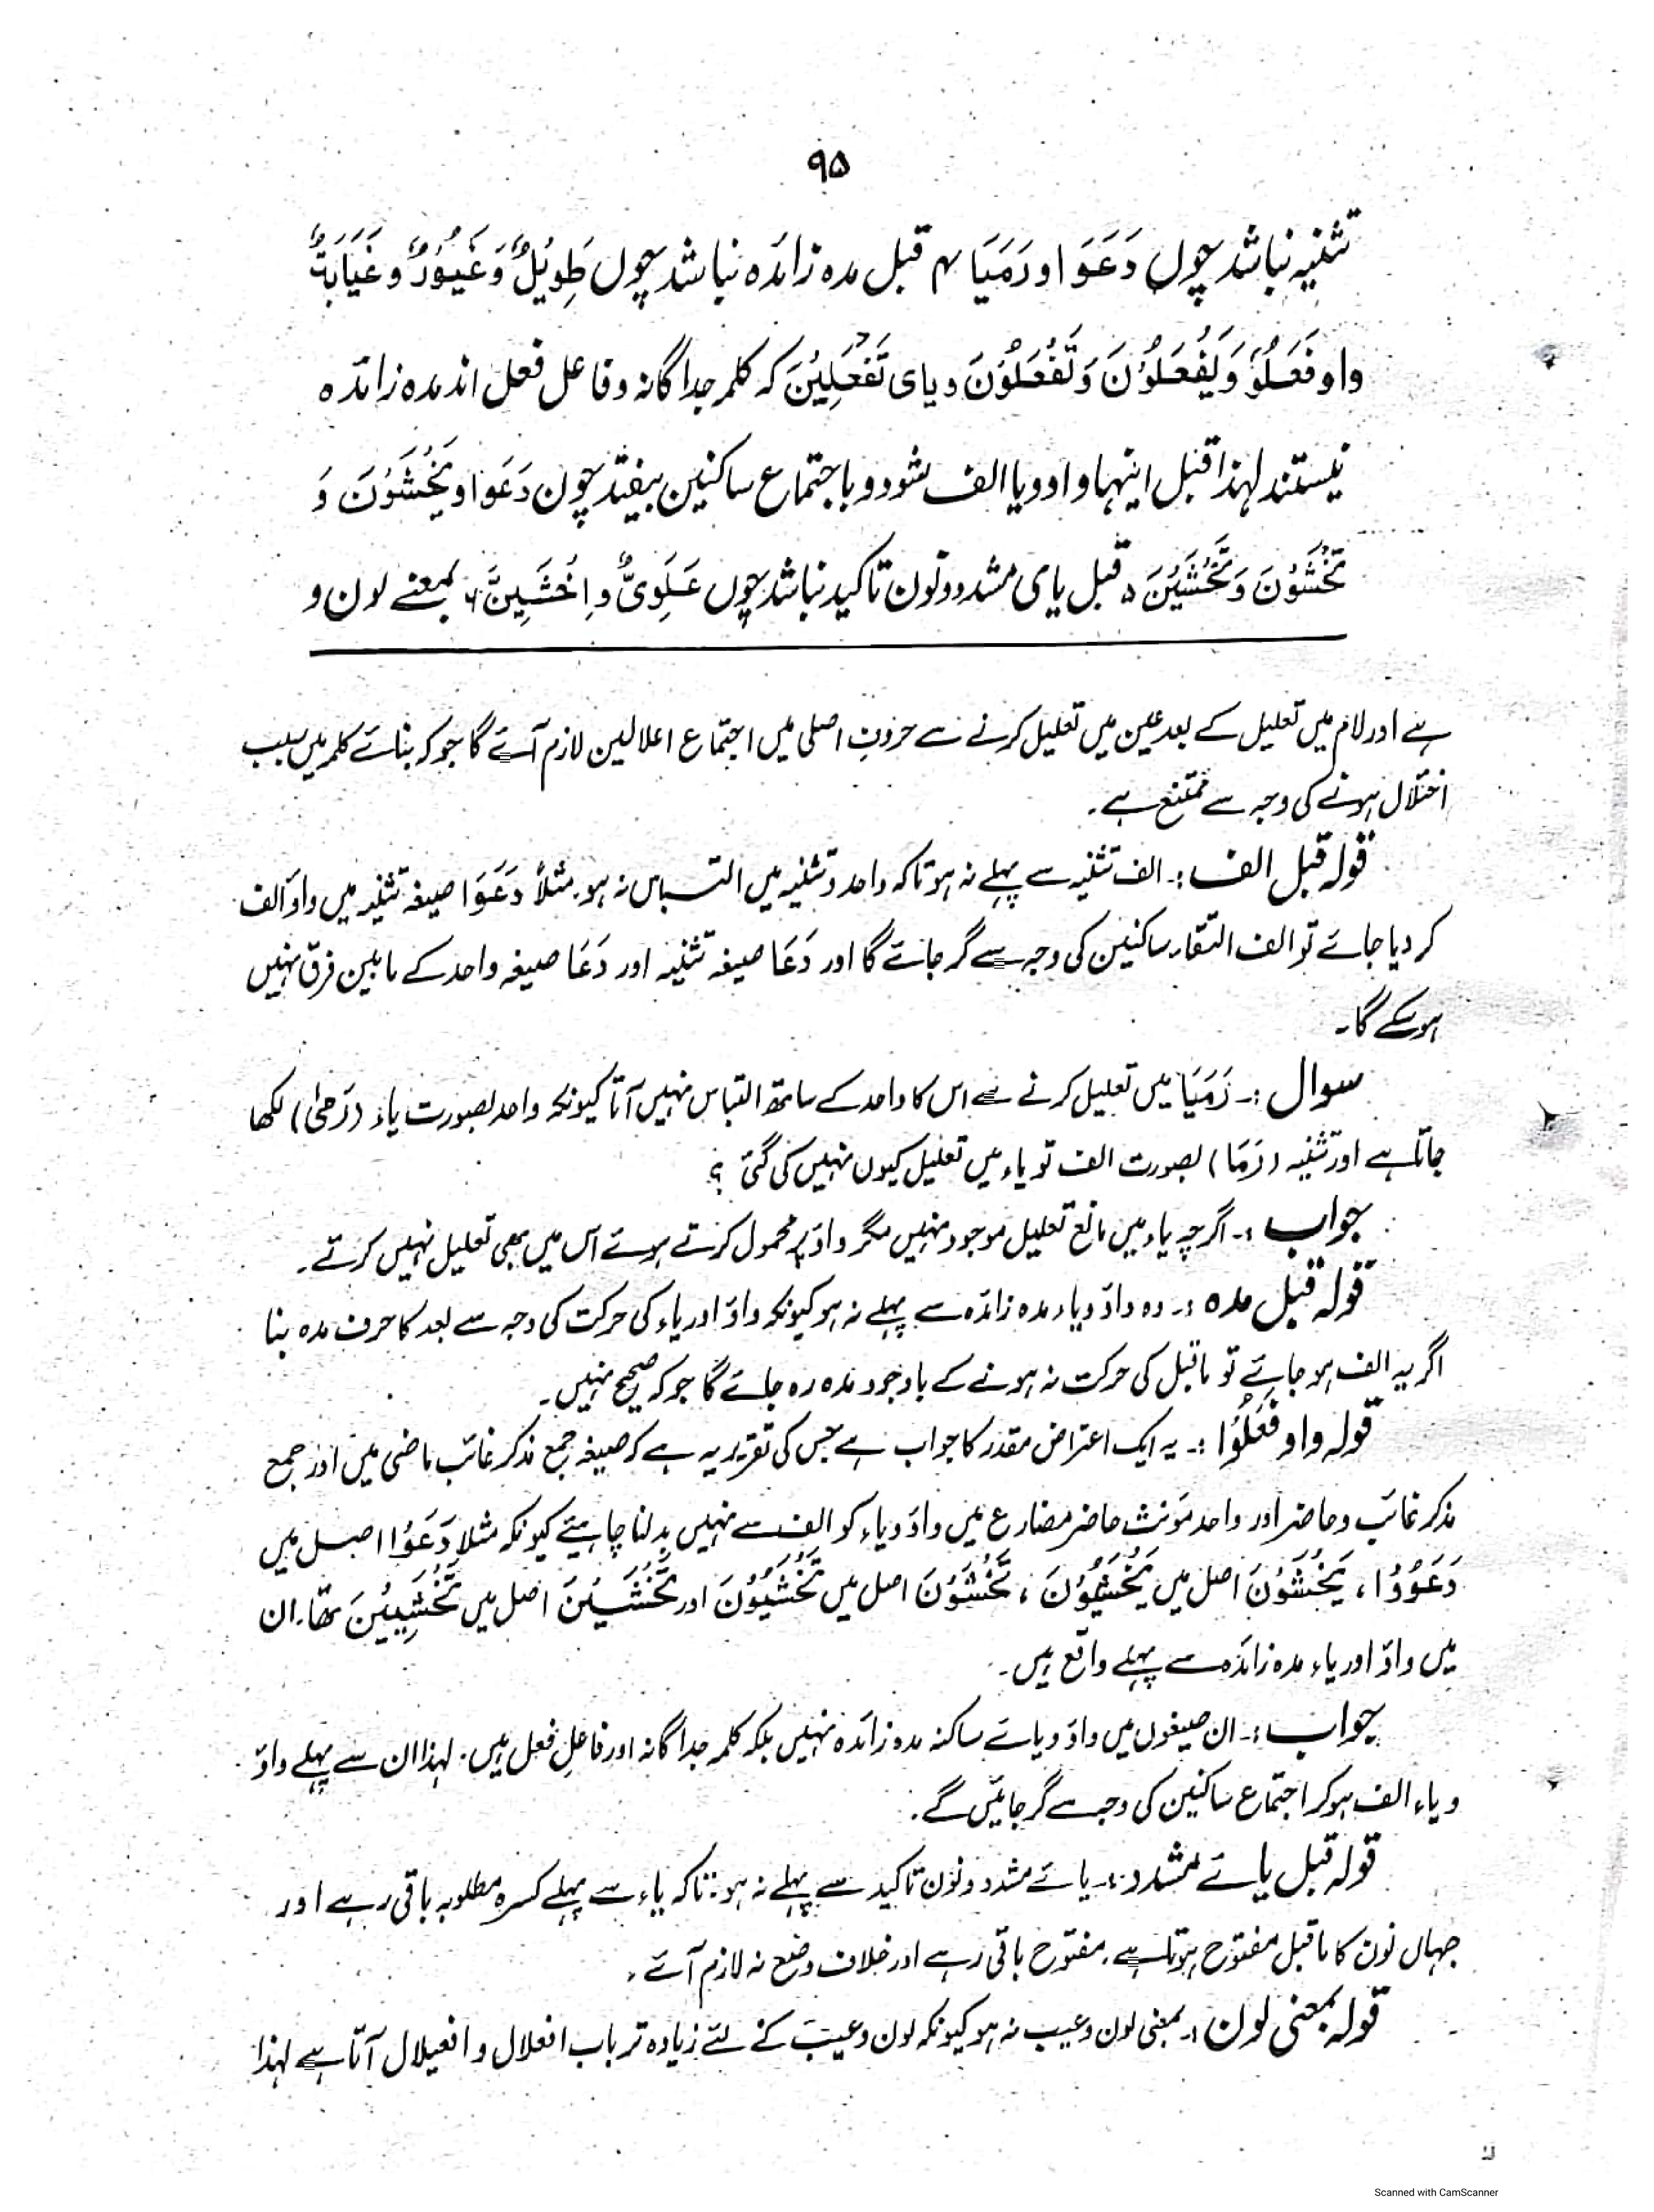 ۹۵
تثنیہ نباشد چوں دَعَوَا و رَمَیَا ۴ قبل مدہ زائدہ نباشد چوں طَوِیْلٌ وَ غَیُوْرٌ و غَیَابَةٌ
واو فَعَلُوْ وَ یَفْعَلُوْنَ وَ تَفْعَلُوْنَ و یای تَفْعَلِیْنَ کہ کلمہ جداگانہ و فاعل فعل اند مدہ زائدہ
نیستند لہذا قبل اینہا واو و یا الف شود و باجتماع ساکنین بیفتد چوں دَعَوا و یَخْشَوْنَ وَ
تَخْشَوْنَ وَ تَخْشَیْنَ ۵ قبل یای مشدد و نون تاکید نباشد چوں عَلَوِیٌّ و اِخْشَیِنَّ ۶ بمعنے لون و
ہے اور لام میں تعلیل کے بعد عین میں تعلیل کرنے سے حروفِ اصلی میں اجتماع اعلالین لازم آئے گا جو کہ بنائے کلمہ میں سبب
اختلال ہونے کی وجہ سے ممتنع ہے۔
قولہ قبل الف :۔ الف تثنیہ سے پہلے نہ ہو تاکہ واحد و تثنیہ میں التباس نہ ہو۔ مثلاً دَعَوَا صیغہ تثنیہ میں واؤ الف
کر دیا جائے تو الف التقاء ساکنین کی وجہ سے گر جائے گا اور دَعَا صیغہ تثنیہ اور دَعَا صیغہ واحد کے مابین فرق نہیں
ہوسکے گا۔
سوال :۔ رَمَیَا میں تعلیل کرنے سے اس کا واحد کے ساتھ التباس نہیں آتا کیونکہ واحد بصورت یاء (رَمیٰ) لکھا
جاتا ہے اور تثنیہ (رَمَا) بصورت الف تو یاء میں تعلیل کیوں نہیں کی گئی ؟
جواب :۔ اگرچہ یاء میں مانع تعلیل موجود نہیں مگر واؤ پر محمول کرتے ہوئے اس میں بھی تعلیل نہیں کرتے۔
قولہ قبل مدہ :۔ وہ واؤ و یاء مدہ زائدہ سے پہلے نہ ہو کیونکہ واؤ اور یاء کی حرکت کی وجہ سے بعد کا حرف مدہ بنا
اگر یہ الف ہو جائے تو ماقبل کی حرکت نہ ہونے کے باوجود مدہ رہ جائے گا جو کہ صحیح نہیں۔
قولہ واو فَعَلُوْا :۔ یہ ایک اعتراض مقدر کا جواب ہے جس کی تقریر یہ ہے کہ صیغہ جمع مذکر غائب ماضی میں اور جمع
مذکر غائب و حاضر اور واحد مؤنث حاضر مضارع میں واؤ و یاء کو الف سے نہیں بدلنا چاہیئے کیونکہ مثلاً دَعَوْا اصل میں
دَعَوُوْا ، یَخْشَوْنَ اصل میں یَخْشَیُوْنَ ، تَخْشَوْنَ اصل میں تَخْشَیُوْنَ اور تَخْشَیْنَ اصل میں تَخْشَیِیْنَ تھا۔ ان
میں واؤ اور یاء مدہ زائدہ سے پہلے واقع ہیں۔
جواب :۔ ان صیغوں میں واؤ و یائے ساکنہ مدہ زائدہ نہیں بلکہ کلمہ جداگانہ اور فاعلِ فعل ہیں۔ لہذا ان سے پہلے واؤ
و یاء الف ہو کر اجتماع ساکنین کی وجہ سے گر جائیں گے۔
قولہ قبل یائے مشدد :۔ یائے مشدد و نون تاکید سے پہلے نہ ہو تاکہ یاء سے پہلے کسرہ مطلوبہ باقی رہے اور
جہاں نون کا ماقبل مفتوح ہوتا ہے، مفتوح باقی رہے اور خلاف وضع نہ لازم آئے۔
قولہ بمعنی لون :۔ بمعنی لون و عیب نہ ہو کیونکہ لون و عیب کے لئے زیادہ تر باب افعلال و افعیلال آتا ہے لہذا
Scanned with CamScanner